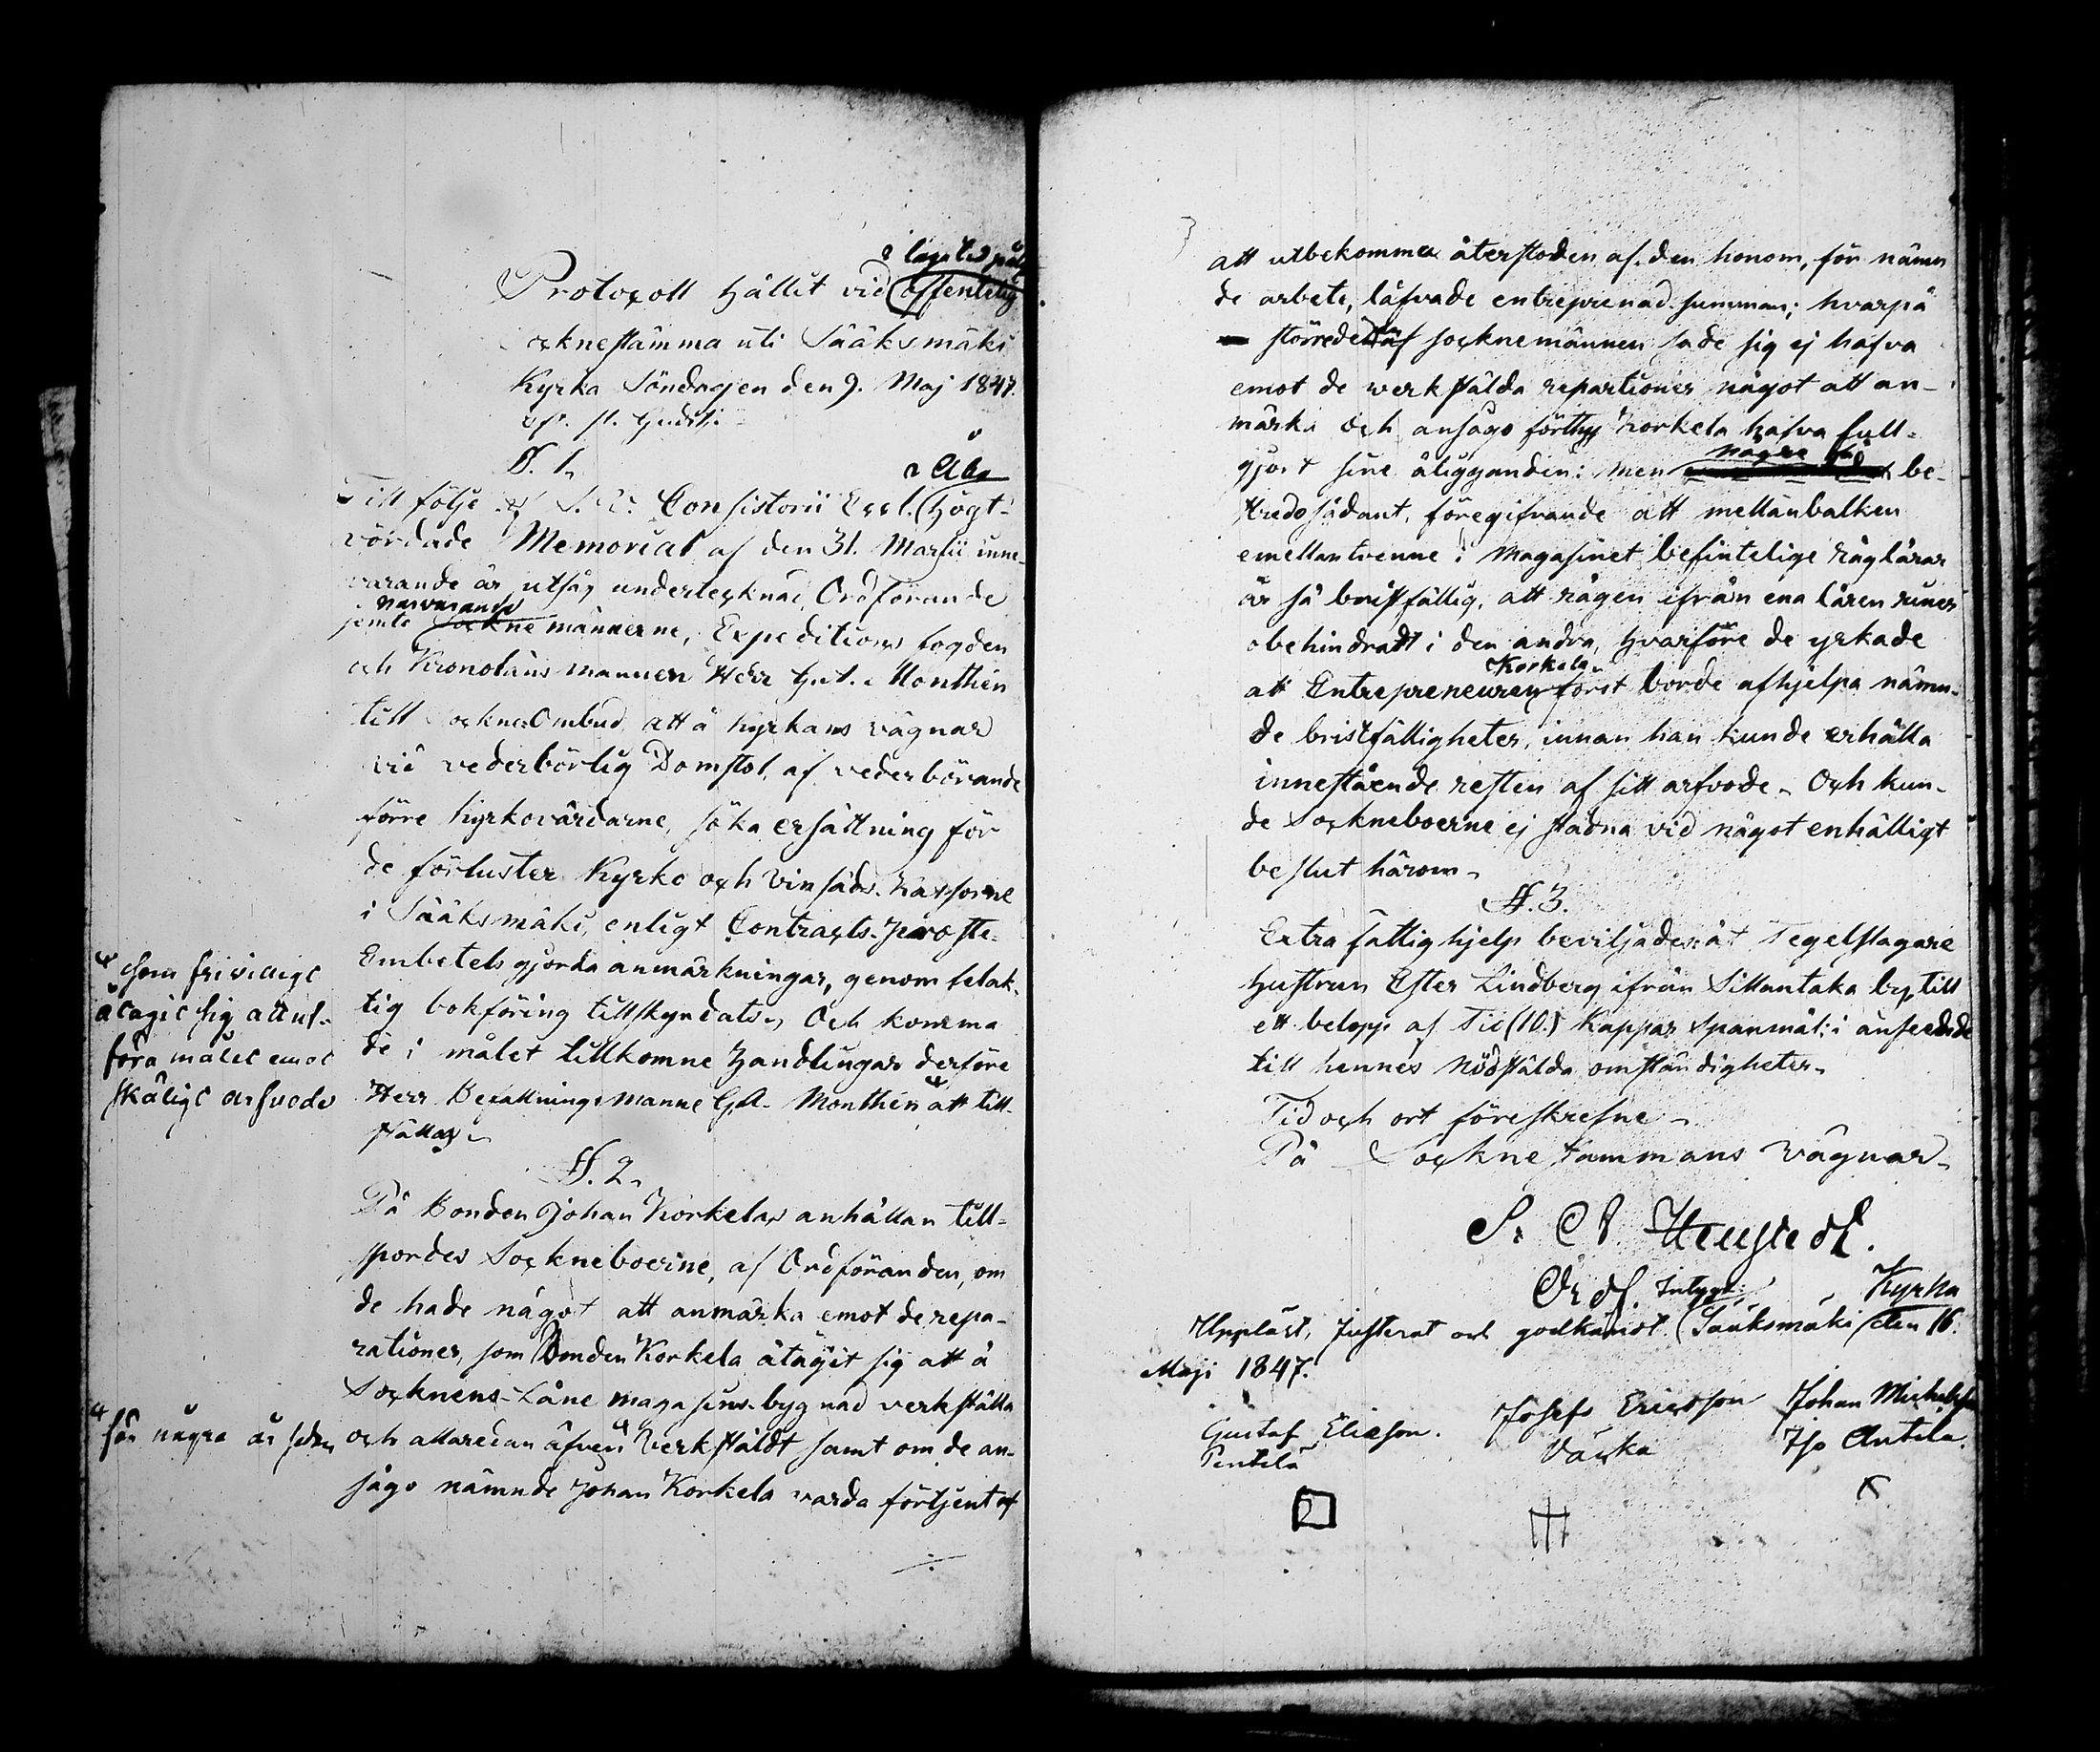 lagl.
Protocoll hållet vid offentelig
Socknestämma uti Sääksmäki
Kyrka Söndagen den 9. Maj 1847.
ef. sl. Gudstj.
§. 1.
Åbo
Till följe af S. V. Consistorii Eccl. Högt-
vördade Memorial af den 31. Martii inne-
varande år utsåg undertecknad Ordförande
närvarande
jemte Sockne männerne, Expeditions fogden
och Kronolänsmannen Herr G. A. Monthén
till Sockne Ombud att å kyrkans vägnar
vid vederbörlig Domstol, af vederbörande
förre kyrkovärdarne, söka ersättning för
de förluster Kyrko och Vinsäds kassorne
i Sääksmäki, enligt Contracts-Prosts-
Embetets gjorda anmärkningar, genom felak-
tig bokföring tillskyndats, Och komma
de i målet tillkomne Handlingar derföre
Herr Befallningsmanne G. A. Monthén att till-
ställas.
som frivilligt
åtagit sig att ut-
föra målet emot
skäligt arfvode
§. 2.
På Bonden Johan Korkelas anhållan till-
spordes Sockneboerne, af Ordföranden, om
de hade något att anmärka emot de repa-
rationer, som Bonden Korkela åtagit sig att å
Socknens-Låne magasins-bygnad verkställa
och allaredan äfven verkställdt samt om de an-
sågo nämnde Johan Korkela varda förtjent af
för några år sedan
att utbekomma återstoden af den honom, för nämn
de arbete, låfvade entreprenad summan; hvarpå
större delen af socknemännen sade sig ej hafva
emot de werkstälda repartioner något att an-
märka och ansågo förthy Korkela hafva full-
gjort sine åligganden: men
några
be-
stredo sådant, föregifvande att mellanbalken
emellan tvenne i Magasinet befintelige råglårar
är så bristfällig, att rågen ifrån ena låren runer
obehindradt i den andra, hvarföre de yrkade
Korkela
att Entrepreneuren först borde afhjelpa nämn-
de bristfälligheter, innan han kunde erhålla
innestående resten af sitt arfvode. Och kun-
de Sockneboerne ej stadna vid något enhälligt
beslut härom.
§. 3.
Extra fattighjelp beviljades åt Tegelslagare
Hustrun Ester Lindberg ifrån Sillantaka by, till
ett belopp af Tio (10.) Kappar Spanmål; i anseende
till hennes nödstälda omständigheter.
Tid och ort föreskrefne.
På Sockne stammans vägnar.
Ordf.
Intygt: Kyrka
Uppläst, Justerat och godkändt Sääksmäki den 16.
Maji 1847.
Gustaf Eliasson. Josefs Ericsson Johan Michelsson
Pentilä Antila.